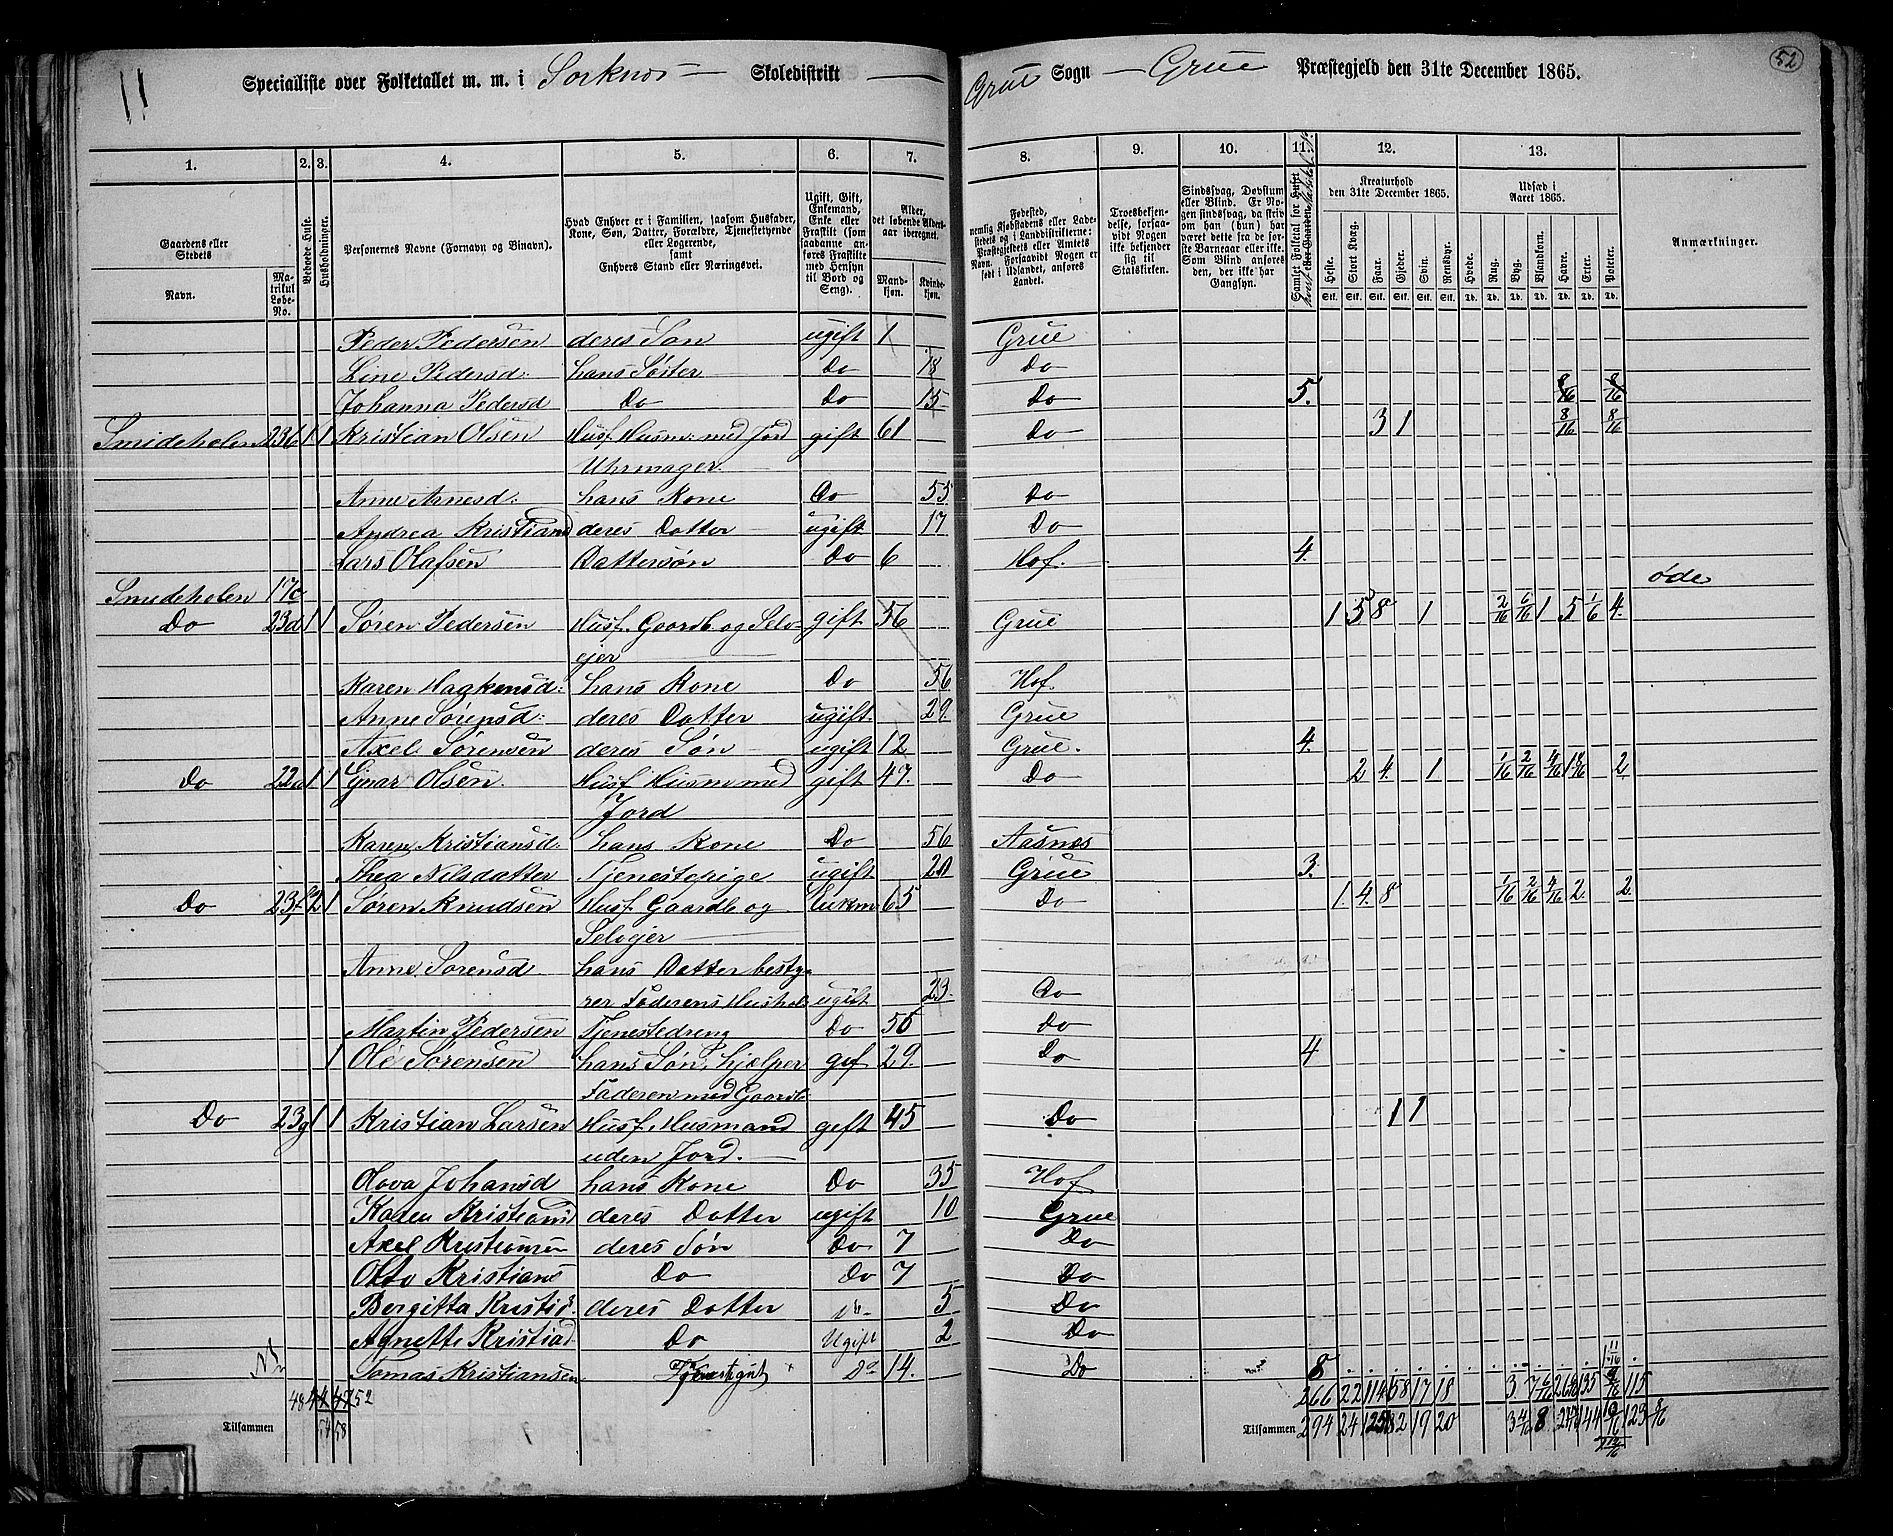 11
Specialliste over Folketallet m. m. i Sorknes Skoledistrikt Grue Sogn Grue Præstegjeld den 31te December 1865.
52
1. 2. 3. 4. 5. 6. 7. 8. 9. 10. 11. 12. 13.
Gaardens eller Stedets Navn. Matrikul Løbe-No.
Beboede Huse.
Husholdninger.
Personernes Navne (Fornavn og Binavn).
Hvad Enhver er i Familien, saasom Husfader, Kone, Søn, Datter, Forældre, Tjenestetyende eller Logerende, samt Enhvers Stand eller Næringsvei.
Ugift, Gift, Enkemand, Enke eller Fraskilt (som saadanne anføres Fraskilte med Hensyn til Bord og Seng).
Alder, det løbende Aldersaar iberegnet. Mandkjøn. Kvindekjøn.
Fødested, nemlig Kjøbstadens eller Ladestedets og i Landdistrikterne: Præstegjeldets eller Amtets Navn. Forsaavidt Nogen er født i Udlandet, anføres Landet.
Troesbekjendelse, forsaavidt Nogen ikke bekjender sig til Statskirken.
Sindssvag, Døvstum eller Blind. Er Nogen sindssvag, da skriv om han (hun) har været dette fra de første Barneaar eller ikke. Som Blind anføres den, der ikke har Gangsyn.
Samlet Folketal for Huset
Kreaturhold den 31te December 1865.
Heste. Stort Kvæg. Faar. Gjeder. Svin. Rensdyr.
Udsæd i Aaret 1865.
Hvede. Rug. Byg. Blandkorn. Havre. Erter. Poteter.
Anmærkninger.
Peder Pedersen deres Søn ugift 1 Grue
Line Pedersd. hans Søster Do 18 Do
Johanna Pedersd Do Do 15 Do 5. 8/16 8/16
Smideholen 23b 1 1 Kristian Olsen Husf. Husm: med Jord gift 61 Do 3 1 8/16 8/16
Uhrmager
Anne Arnesd: hans Kone Do 55 Do
Andrea Kristiansd deres Datter ugift 17 Do
Lars Olafsen Dattersøn Do 6 Hof. 4.
Smedeholen 17c øde
Do 23d 1 1 Søren Pedersen Husf. Gaardb og Selv- gift 56 Grue 1 5 8 1 2/16 6/16 1 5 1/6 4.
ejer
Karen Haakensd: hans Kone Do 56 Hof.
Anne Sørensd: deres Datter ugift. 29. Grue
Axel Sørensen deres Søn ugift 12 Grue. 4.
Do 22a 1 1 Gunar Olsen. Husf Husm med gift 47. Do 2 4. 1 1/16 2/16 4/16 1 8/16 2
Jord
Karen Kristiansd: hans Kone Do 56 Aasnes
Thea Nilsdatter Tjenestepige ugift 20 Grue 3.
Do 23f 2 1 Søren Knudsen Husf. Gaardb og Enkem 65 Do 1. 4. 8 1/16 2/16 4/16 2. 2
Selvejer
Anne Sørensd hans Datter besty-
rer Faderens Hushol: ugift 23. Do
Martin Pedersen Tjenestedreng Do 55 Do
1 Ole Sørensen hans Søn, hjelper gif 29. Do 4
Faderen med Gaardb
Do 23g 1 1 Kristian Larsen Husf. Husmand gift 45 Do 1 1
uden Jord.
Olova Johansd hans Kone Do 35 Hof
Karen Kristiansd deres Datter ugift 10 Grue
Axel Kristiansen deres Søn Do 7 Do
Otto Kristians Do Do 7 Do
Bergitta Kristia deres Datter 5 Do
Agnette Kristiad Do Ugift 2 Do
Tomas Kristiansen Tjenestegut Do 14. Do 8
48 44 47 52 266 22 114 58 17 18 3 7 6/16 268 135 9/16 115
Tilsammen 54 58 Tilsammen 294 24 125 82 19 20 3 4/16 8 144 123 8/16